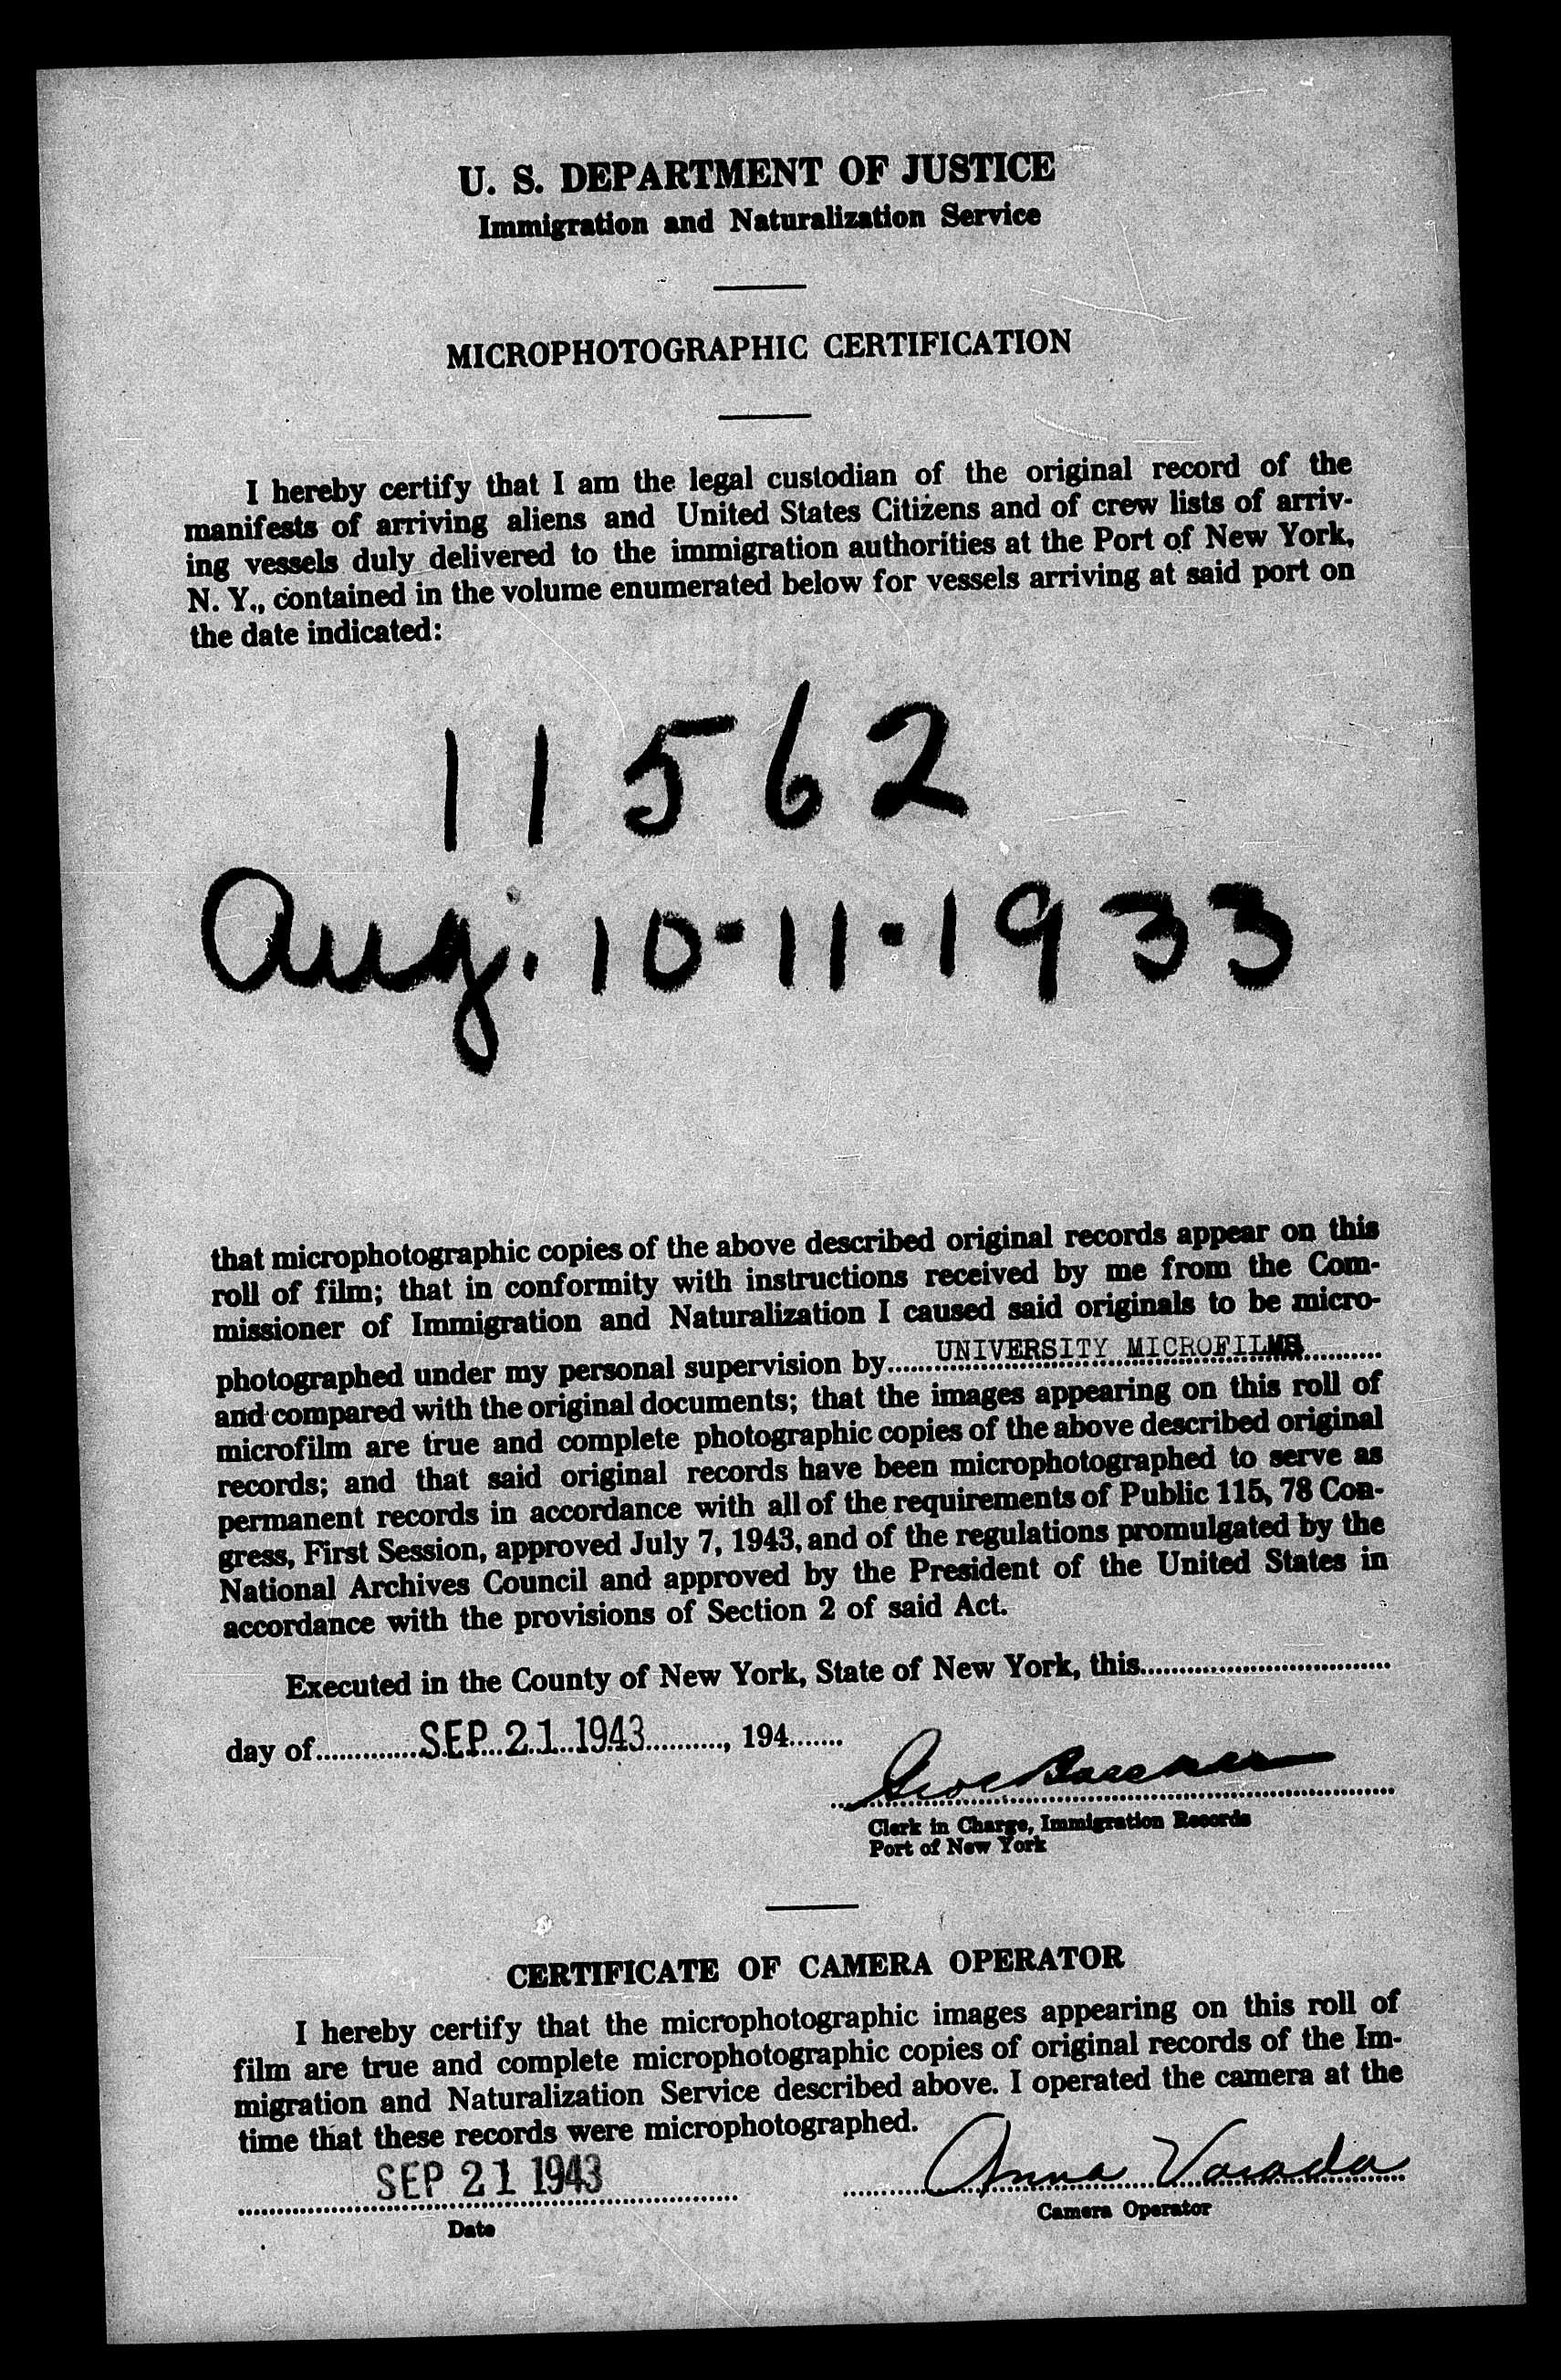 U. S. DEPARTMENT OF JUSTICE
Immigration and Naturalization Service
MICROPHOTOGRAPHIC CERTIFICATION
I hereby certify that I am the legal custodian of the original record of the
manifests of arriving aliens and United States Citizens and of crew lists of arriv-
ing vessels duly delivered to the immigration authorities at the Port of New York,
N. Y., contained in the volume enumerated below for vessels arriving at said port on
the date indicated:
11562
Aug. 10-11-1933
that microphotographic copies of the above described original records appear on this
roll of film; that in conformity with instructions received by me from the Com-
missioner of Immigration and Naturalization I caused said originals to be micro-
photographed under my personal supervision by......UNIVERSITY MICROFILMS..........
and compared with the original documents; that the images appearing on this roll of
microfilm are true and complete photographic copies of the above described original
records; and that said original records have been microphotographed to serve as
permanent records in accordance with all of the requirements of Public 115, 78 Con-
gress, First Session, approved July 7, 1943, and of the regulations promulgated by the
National Archives Council and approved by the President of the United States in
accordance with the provisions of Section 2 of said Act.
Executed in the County of New York, State of New York, this................................
day of.............SEP 21 1943.........., 194.......
Clerk in Charge, Immigration Records
Port of New York
CERTIFICATE OF CAMERA OPERATOR
I hereby certify that the microphotographic images appearing on this roll of
film are true and complete microphotographic copies of original records of the Im-
migration and Naturalization Service described above. I operated the camera at the
time that these records were microphotographed.
SEP 21 1943
Anna
Date
Camera Operator